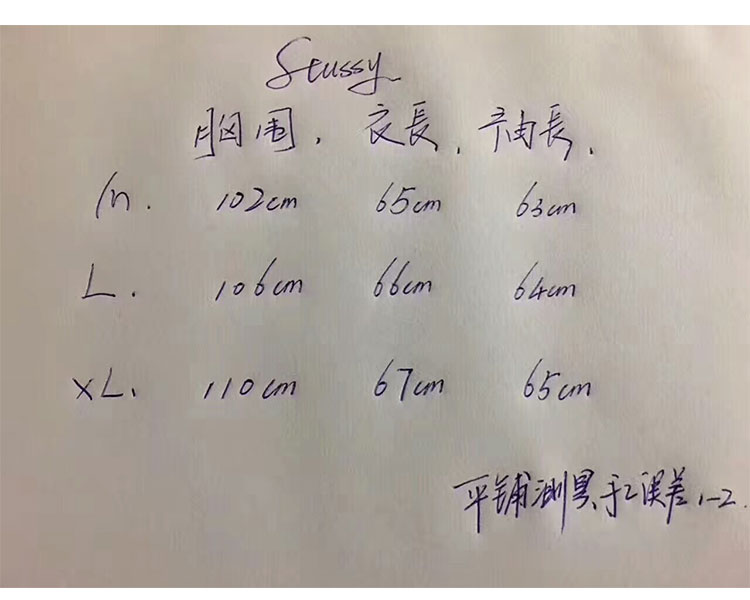 Stussy
胸囲. 衣長. 袖長.
m. 102cm 65cm 63cm
L. 106cm 66cm 64cm
XL. 110cm 67cm 65cm
平铺测量手工误差1-2.